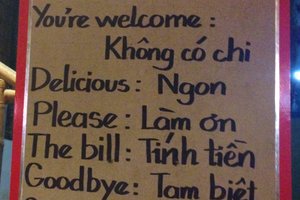 You're welcome :
Không có chi
Delicious : Ngon
Please : Làm ơn
The bill : Tính tiền
Goodbye : Tạm biệt